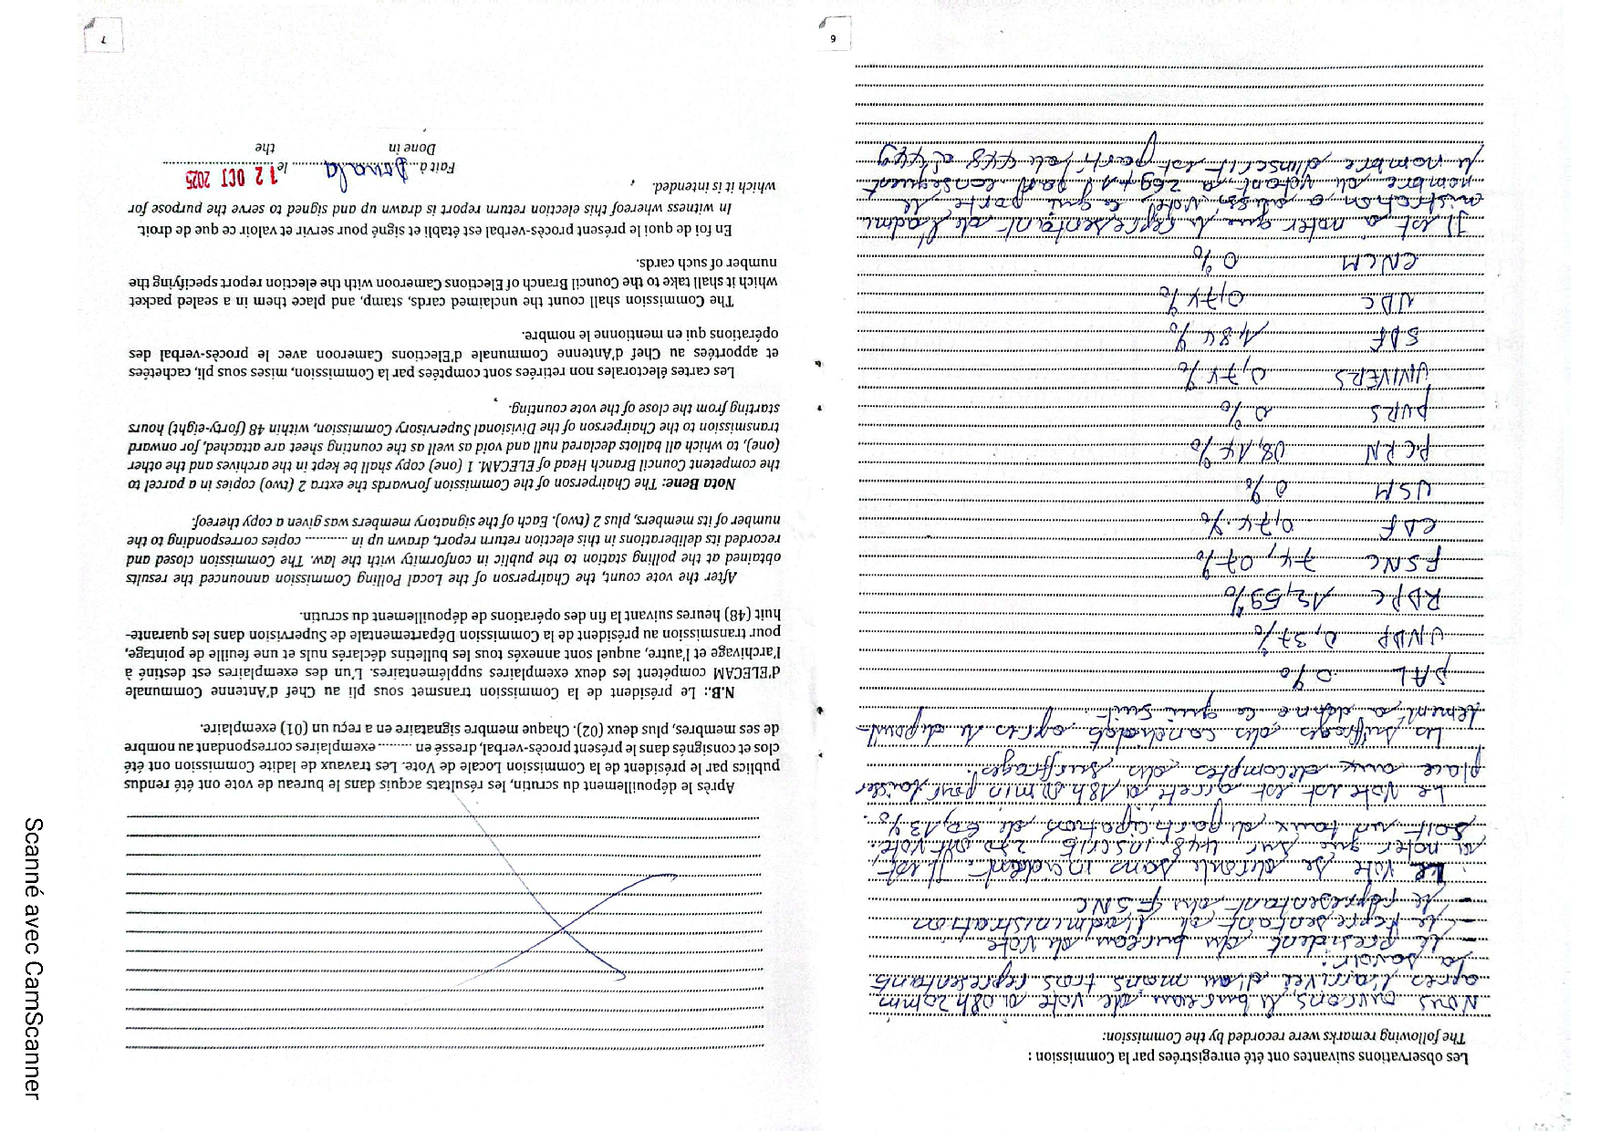 6
Les observations suivantes ont été enregistrées par la Commission :
The following remarks were recorded by the Commission:
Nous ouvrons le bureau de vote à 08h20mm
après l'arrivée d'au moins trois représentants
à savoir:
- le président du bureau du vote
- le représentant de l'administration
- le représentant du FSNC
Le vote se déroule sans incident. Il est
à noter que sur 448 inscrits, 270 ont voté.
Soit un taux de participation de 60,13 %.
Le vote est arrêté à 18h 00 min pour laisser
place aux décomptes des suffrages.
Les suffrages des candidats après le dépouil-
lement a donné ce qui suit:
PAL 0%
UNDP 0,37%
RDPC 12,59%
FSNC 74,07%
CDF 0,74%
USM 0%
PCRN 08,14%
PURS 0%
UNIVERS 0,74%
SDF 1,84%
UDC 0,74%
CNCM 0%
Il est à noter que le représentant de l'admi
nistration a aussi voté, ce qui porte le
nombre de votant à 269+1 par conséquent
le nombre d'inscrit est parti de 448 à 449
7
Après le dépouillement du scrutin, les résultats acquis dans le bureau de vote ont été rendus
publics par le président de la Commission Locale de Vote. Les travaux de ladite Commission ont été
clos et consignés dans le présent procès-verbal, dressé en .......... exemplaires correspondant au nombre
de ses membres, plus deux (02). Chaque membre signataire en a reçu un (01) exemplaire.
N.B.: Le président de la Commission transmet sous pli au Chef d'Antenne Communale
d'ELECAM compétent les deux exemplaires supplémentaires. L'un des exemplaires est destiné à
l'archivage et l'autre, auquel sont annexés tous les bulletins déclarés nuls et une feuille de pointage,
pour transmission au président de la Commission Départementale de Supervision dans les quarante-
huit (48) heures suivant la fin des opérations de dépouillement du scrutin.
After the vote count, the Chairperson of the Local Polling Commission announced the results
obtained at the polling station to the public in conformity with the law. The Commission closed and
recorded its deliberations in this election return report, drawn up in .......... copies corresponding to the
number of its members, plus 2 (two). Each of the signatory members was given a copy thereof.
Nota Bene: The Chairperson of the Commission forwards the extra 2 (two) copies in a parcel to
the competent Council Branch Head of ELECAM. 1 (one) copy shall be kept in the archives and the other
(one), to which all ballots declared null and void as well as the counting sheet are attached, for onward
transmission to the Chairperson of the Divisional Supervisory Commission, within 48 (forty-eight) hours
starting from the close of the vote counting.
Les cartes électorales non retirées sont comptées par la Commission, mises sous pli, cachetées
et apportées au Chef d'Antenne Communale d'Elections Cameroon avec le procès-verbal des
opérations qui en mentionne le nombre.
The Commission shall count the unclaimed cards, stamp, and place them in a sealed packet
which it shall take to the Council Branch of Elections Cameroon with the election report specifying the
number of such cards.
En foi de quoi le présent procès-verbal est établi et signé pour servir et valoir ce que de droit.
In witness whereof this election return report is drawn up and signed to serve the purpose for
which it is intended.
Fait à Douala le 12 OCT 2025
Done in the
Scanné avec CamScanner